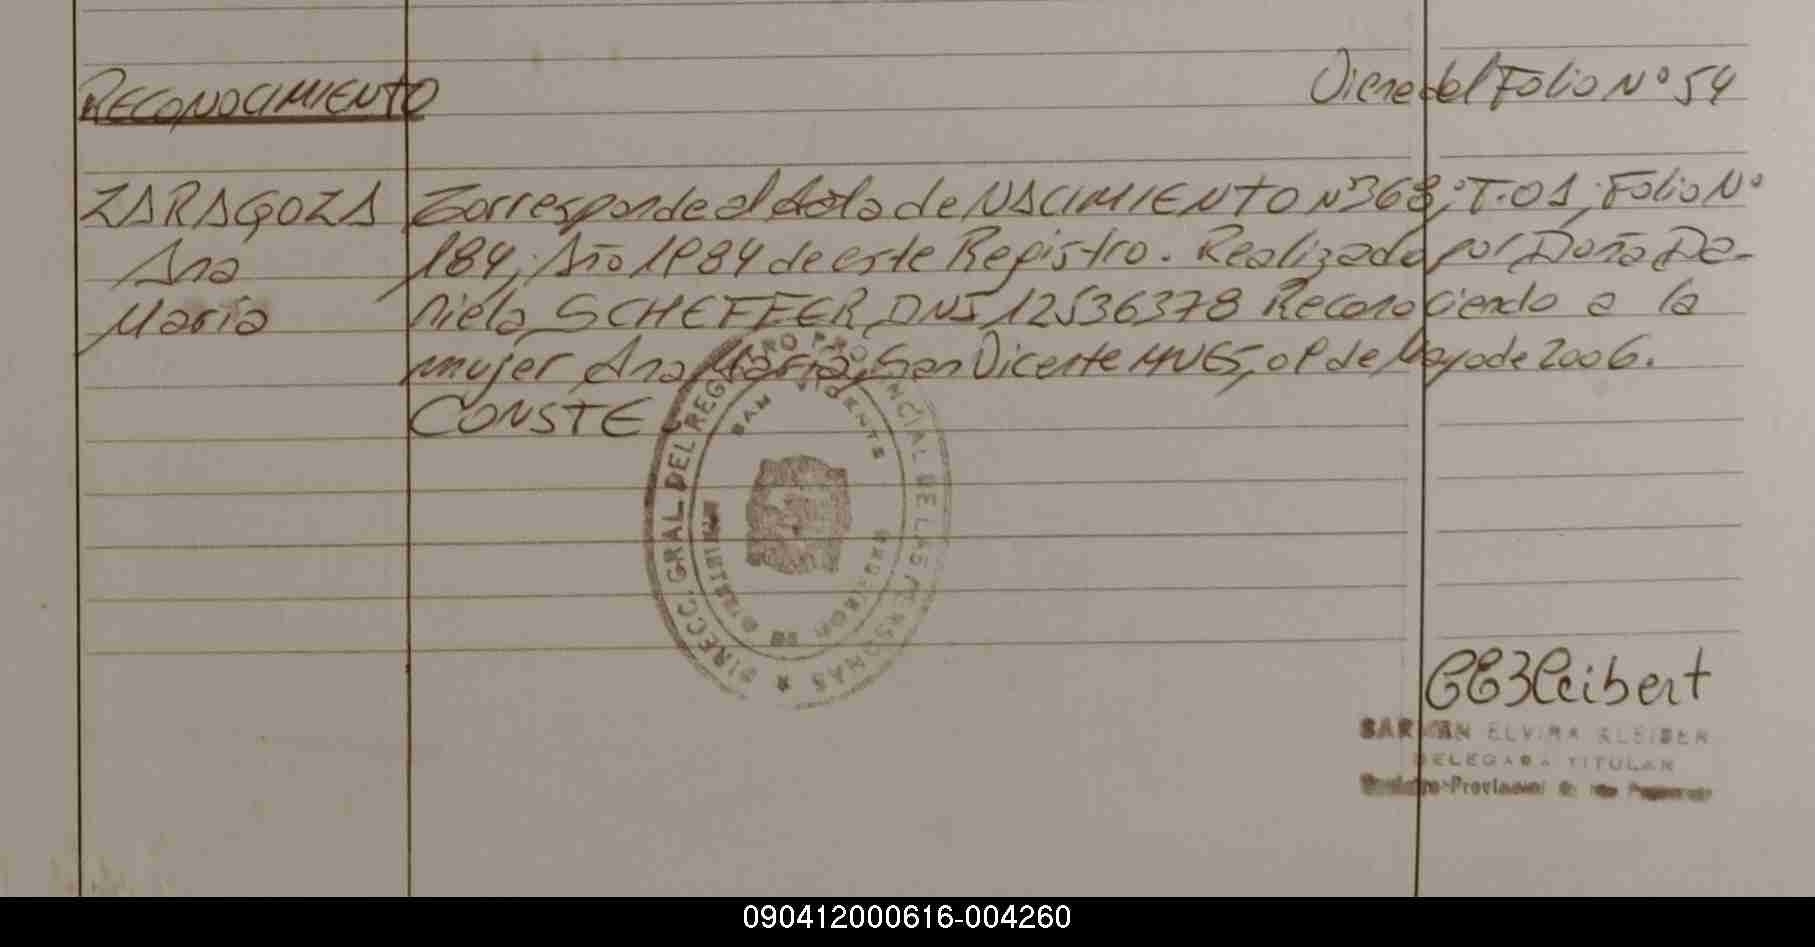 RECONOCIMIENTO
Viene del Folio N° 54
ZARAGOZA
Ana
María
Corresponde al Acta de NACIMIENTO N°368; T.01; Folio N°
184; Año 1984 de este Registro. Realizado por Doña Da-
niela SCHEFFER DNI 12536378 Reconociendo a la
mujer Ana María, San Vicente MNES, 09 de Mayo de 2006.
CONSTE
DIRECC. GRAL. DEL REGISTRO PROVINCIAL DE LAS PERSONAS
SAN VICENTE
ELVIRA KLEIBER
DELEGADA TITULAR
Registro Provincial de las Personas
090412000616-004260